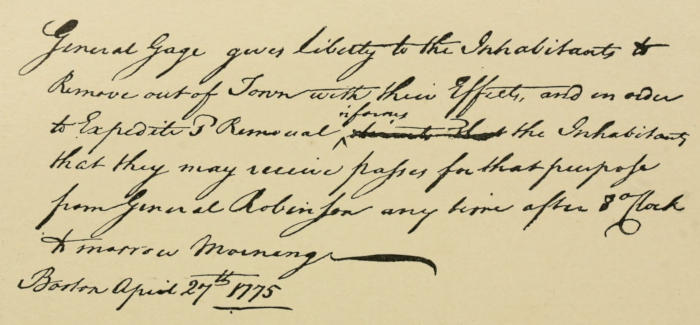 General Gage gives liberty to the Inhabitants to
Remove out of Town with their Effects, and in order
to Expedite sd Removal informs the Inhabitants
that they may receive passes for that purpose
from General Robinson any time after 8 oClock
tomorrow Morning
Boston April 27th 1775